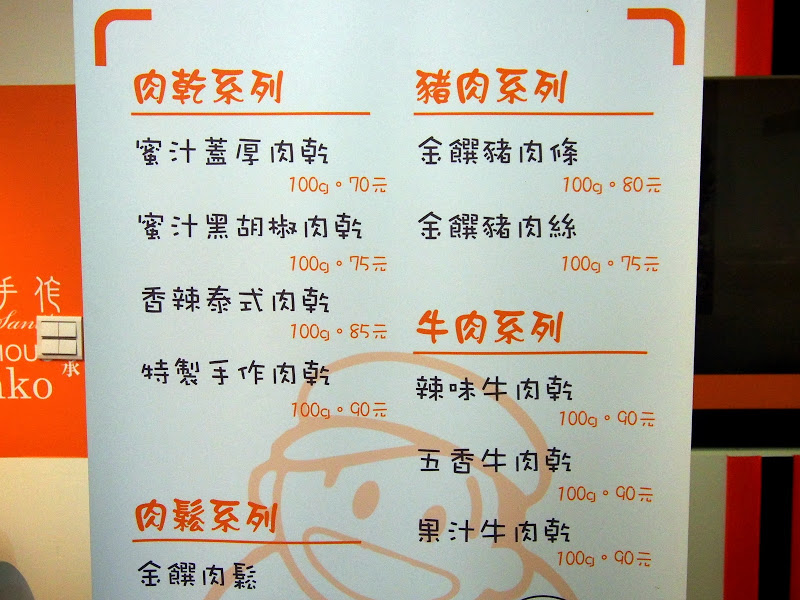 肉乾系列
蜜汁蓋厚肉乾
100g。70元
蜜汁黑胡椒肉乾
100g。75元
香辣泰式肉乾
100g。85元
特製手作肉乾
100g。90元
肉鬆系列
金饌肉鬆
豬肉系列
金饌豬肉條
100g。80元
金饌豬肉絲
100g。75元
牛肉系列
辣味牛肉乾
100g。90元
五香牛肉乾
100g。90元
果汁牛肉乾
100g。90元
手作
承